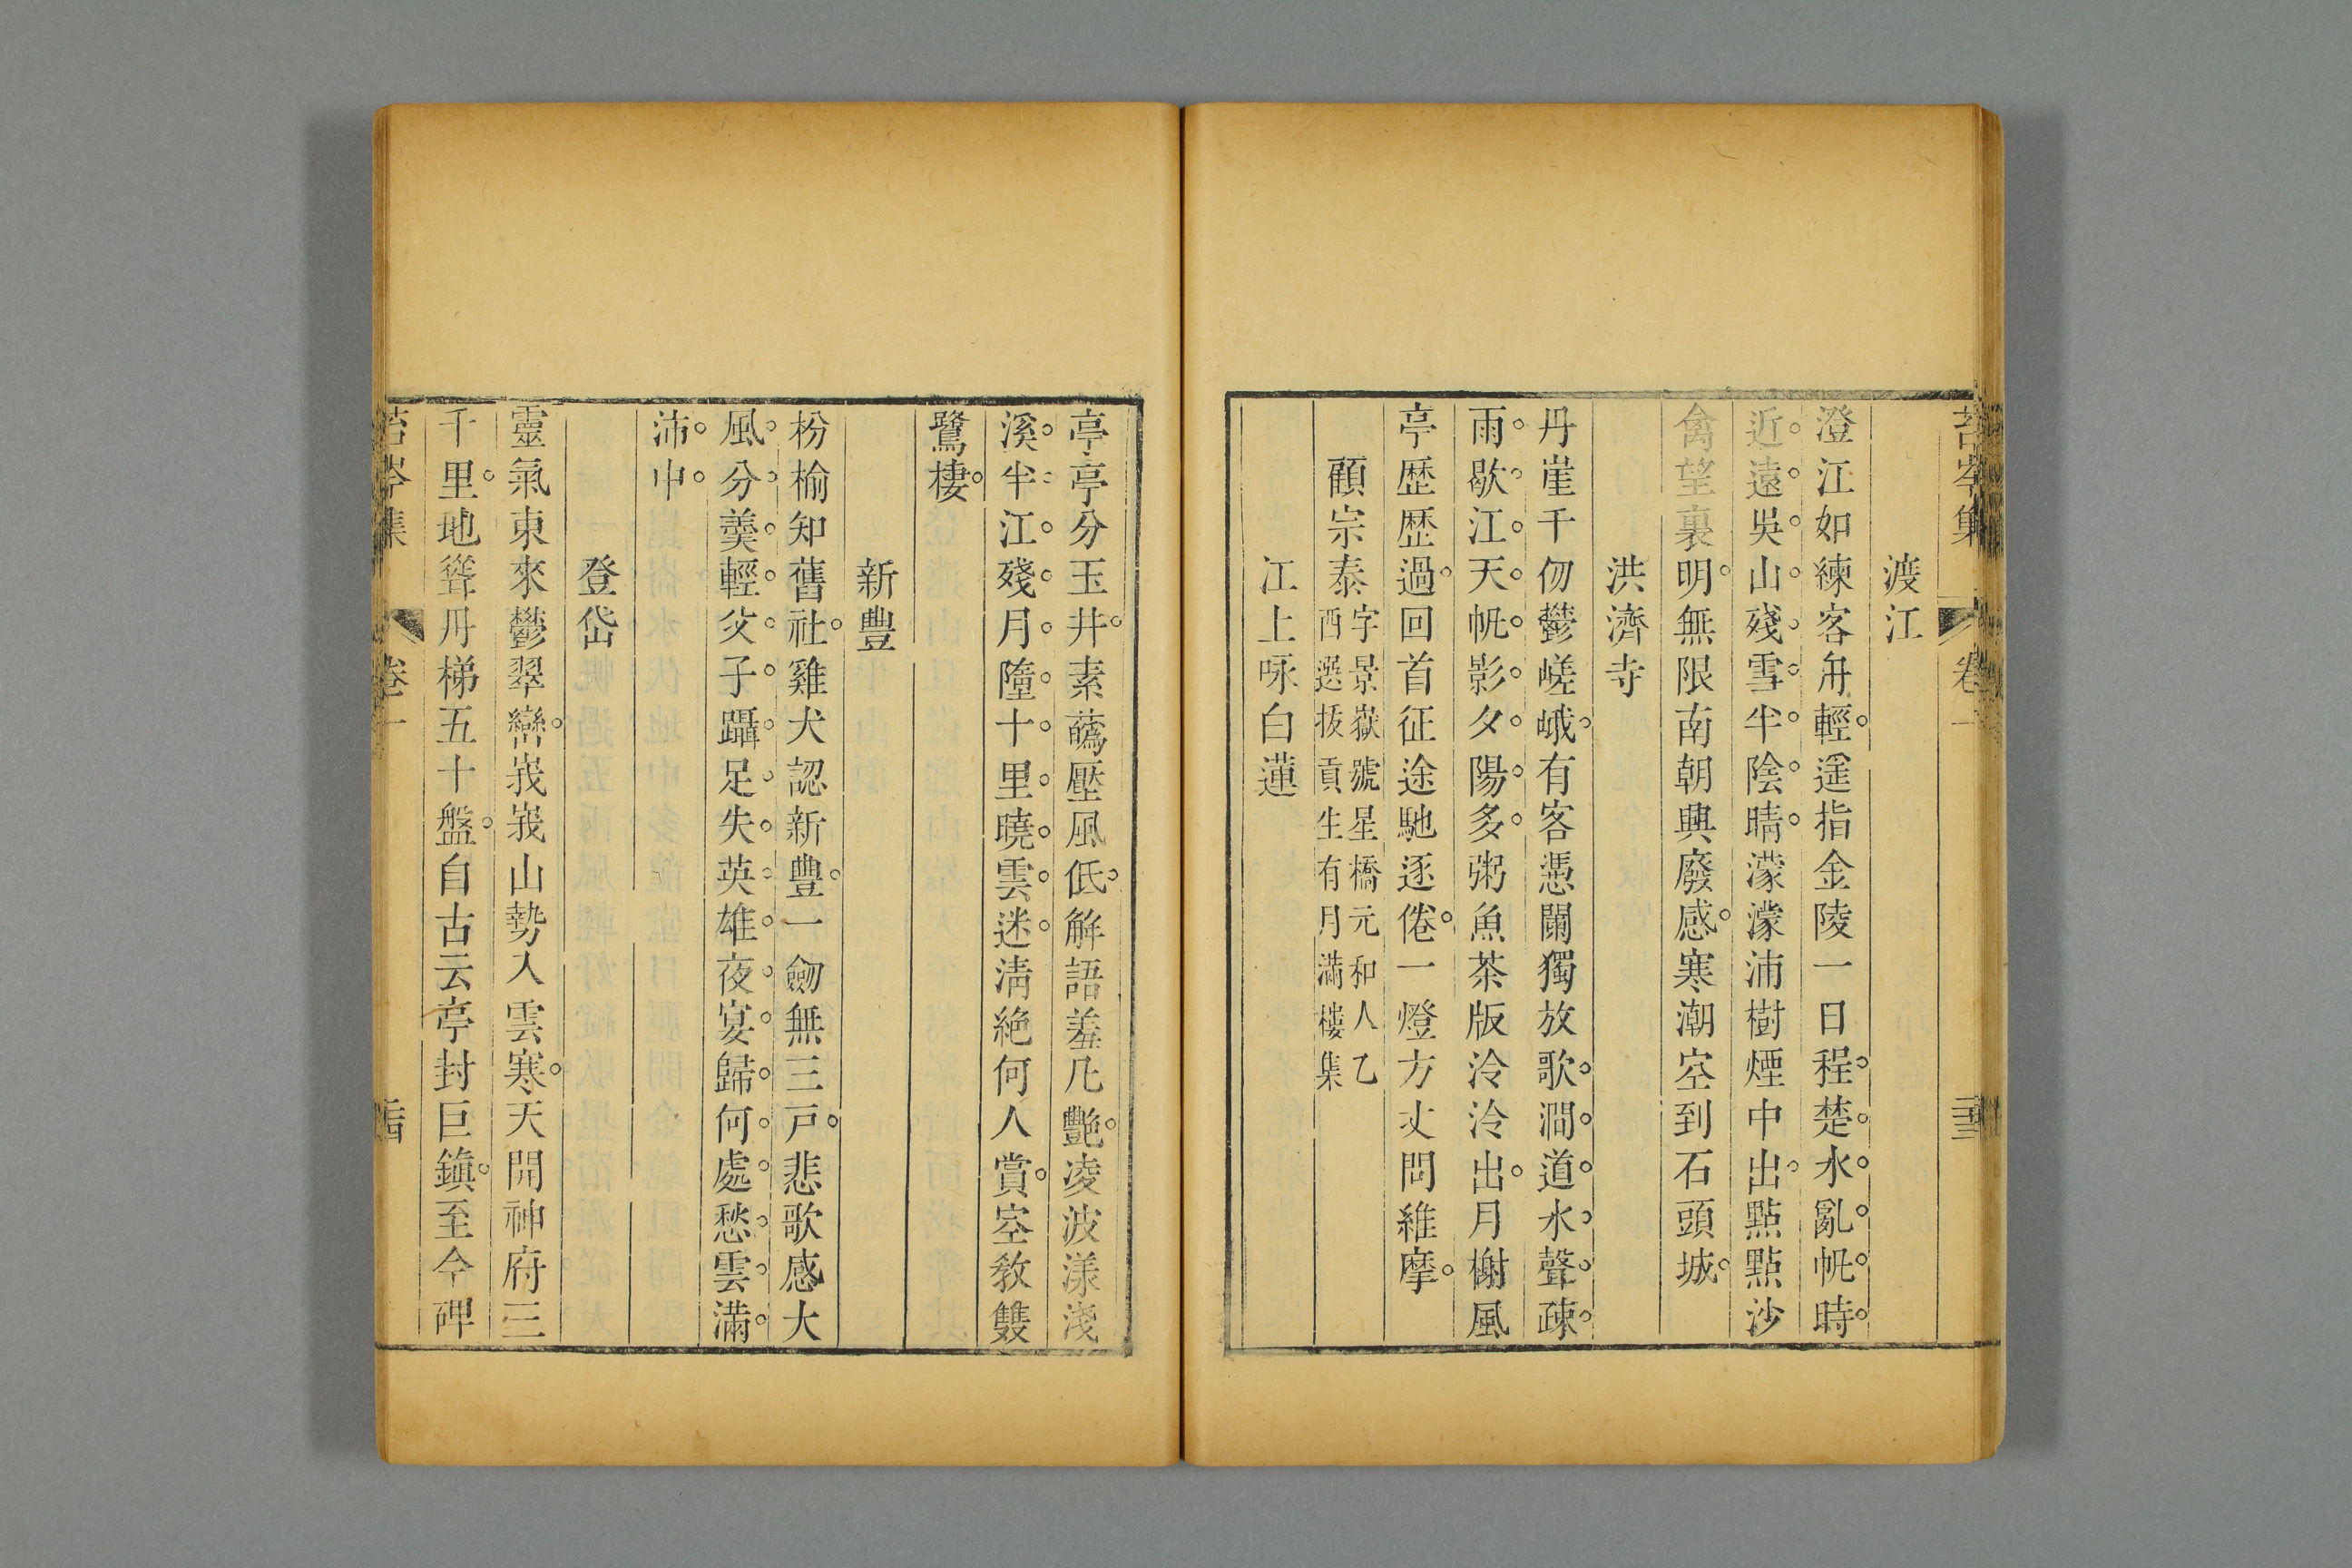 苔岑集 卷一
渡江
澄江如練客舟輕遥指金陵一日程楚水亂帆時
近遠吳山殘雪半陰晴濛濛浦樹煙中出點點沙
禽望裏明無限南朝興廢感寒潮空到石頭城
洪濟寺
丹崖千仞鬱嵯峨有客憑闌獨放歌澗道水聲疎
雨歇江天帆影夕陽多粥魚茶版泠泠出月榭風
亭歷歷過回首征途馳逐倦一燈方丈問維摩
顧宗泰字景嶽號星橋元和人乙
酉選拔貢生有月滿樓集
江上咏白蓮
亭亭分玉井素蘤壓風低解語羞凡艷凌波漾淺
溪半江殘月墮十里曉雲迷淸絶何人賞空教雙
鷺棲
新豐
枌榆知舊社雞犬認新豐一劒無三戸悲歌感大
風分羹輕父子躡足失英雄夜宴歸何處愁雲滿
沛中
登岱
靈氣東來鬱翠巒峩峩山勢入雲寒天開神府三
千里地聳丹梯五十盤自古云亭封巨鎭至今碑
苔岑集 卷一